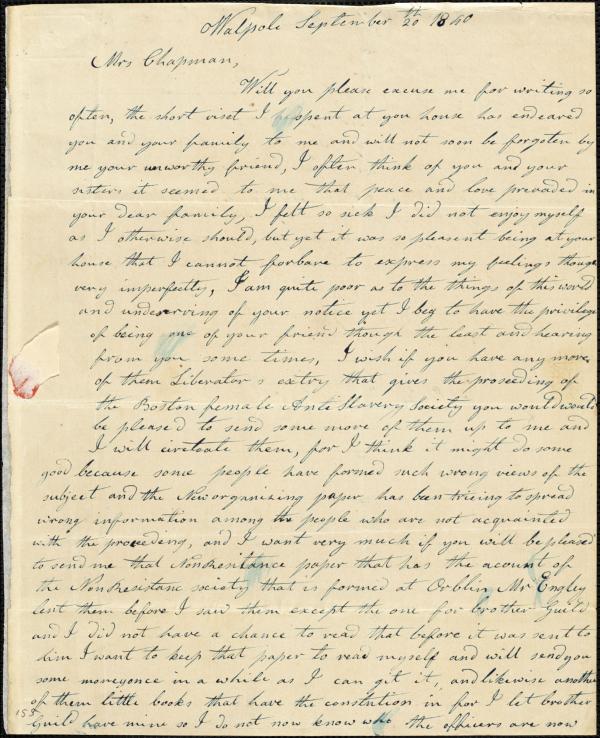 Walpole September 20th 1840
Mrs Chapman,
Will you please excuse me for writing so
often, the short visit I spent at you house has endeared
you and your family to me and will not soon be forgoten by
me your unworthy friend, I often think of you and your
sisters it seemed to me that peace and love prevaded in
your dear family, I felt so sick I did not enjoy myself
as I otherwise should, but yet it was so pleasent being at your
house that I cannot forbare to express my feelings though
very imperfectly, I am quite poor as to the things of this world
and undeserving of your notice yet I beg to have the privilege
of being one of your friend though the least and hearing
from you some times, I wish if you have any more
of them Liberator s extry that gives the proseeding of
the Boston female Anti Slavery Society you would would
be pleased to send some more of them up to me and
I will circtoate them, for I think it might do some
good because some people have formed such wrong views of the
subject and the New organizing paper has been tricing to spread
wrong information among the people who are not acquainted
with the proceeding, and I want very much if you will be pleased
to send me that NonResistance paper that has the acount of
the NonResistanc society that is formed at Orblin Mr Engley
lent them before I saw them except the one for brother Guild
and I did not have a chance to read that before it was sent to
him I want to keep that paper to read myself and will send you
some moneyonce in a while as I can git it, and likewise another
of them little books that have the constution in for I let brother
Guild have mine so I do not now know who the officers are now
155